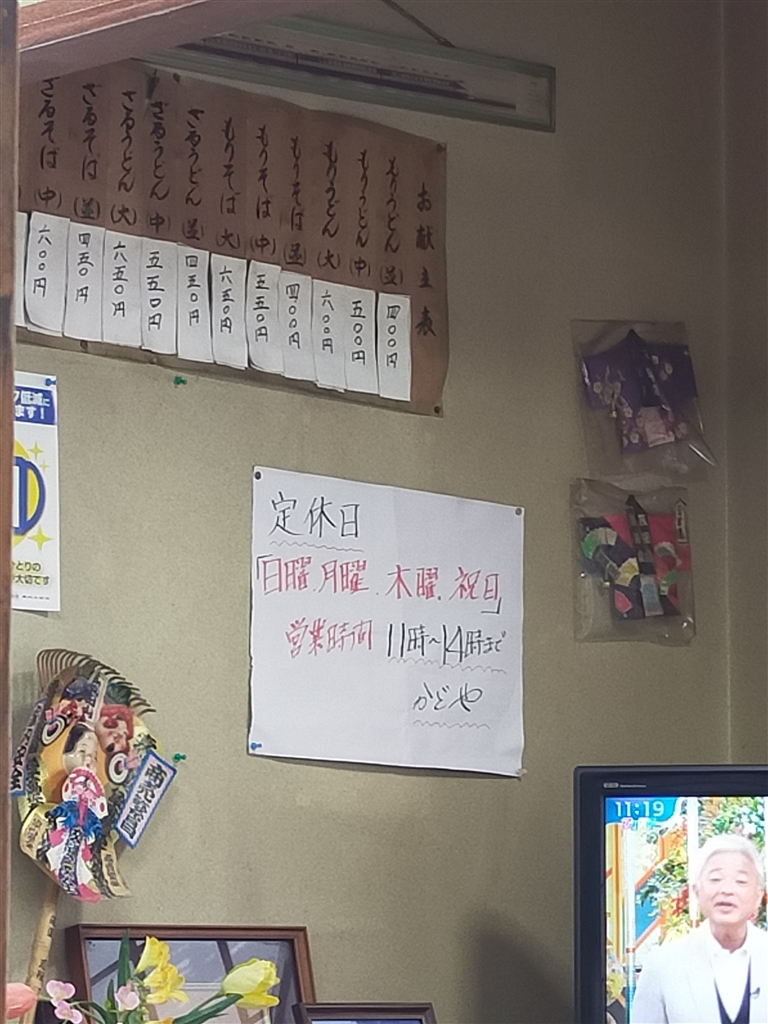 お献立表
もりうどん(並) 四〇〇円
もりうどん(中) 五〇〇円
もりうどん(大) 六〇〇円
もりそば(並) 四〇〇円
もりそば(中) 五五〇円
もりそば(大) 六五〇円
ざるうどん(並) 四五〇円
ざるうどん(中) 五五〇円
ざるうどん(大) 六五〇円
ざるそば(並) 四五〇円
ざるそば(中) 六〇〇円
低減に
ます!
とりの
大切です
定休日
「日曜.月曜.木曜.祝日」
営業時間 11時~14時まで
かどや
商売繁昌
11:19